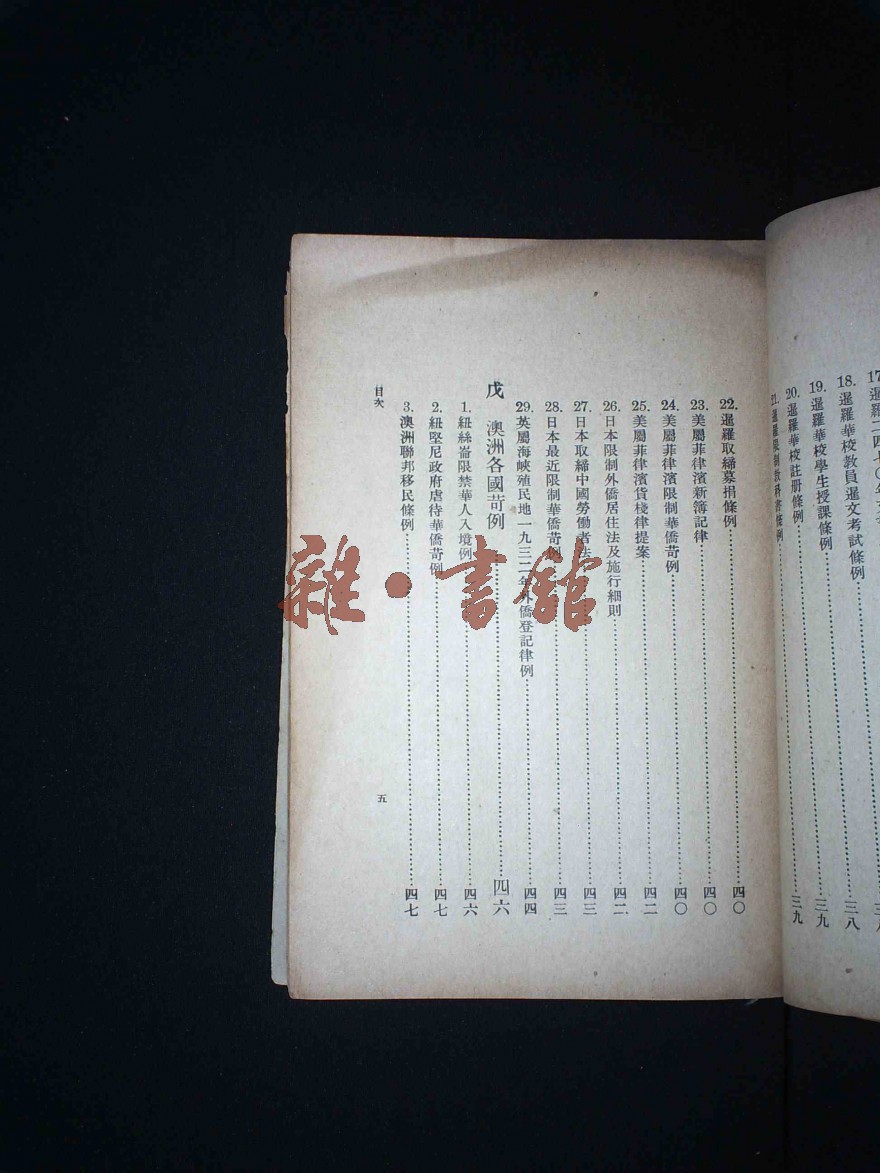 18.暹羅華校教員暹文考試條例……三八
19.暹羅華校學生授課條例……三九
20.暹羅華校註册條例……三九
22.暹羅取締募捐條例……四〇
23.美屬菲律濱新簿記律……四〇
24.美屬菲律濱限制華僑苛例……四〇
25.美屬菲律濱貨棧律提案……四二
26.日本限制外僑居住法及施行細則……四二
27.日本取締中國勞働者法……四三
28.日本最近限制華僑苛例……四三
29.英屬海峽殖民地一九三二年外僑登記律例……四四
戊 澳洲各國苛例……四六
1.紐絲崙限禁華人入境例……四六
2.紐堅尼政府虐待華僑苛例……四七
3.澳洲聯邦移民條例……四七
目次
五
雜·書館